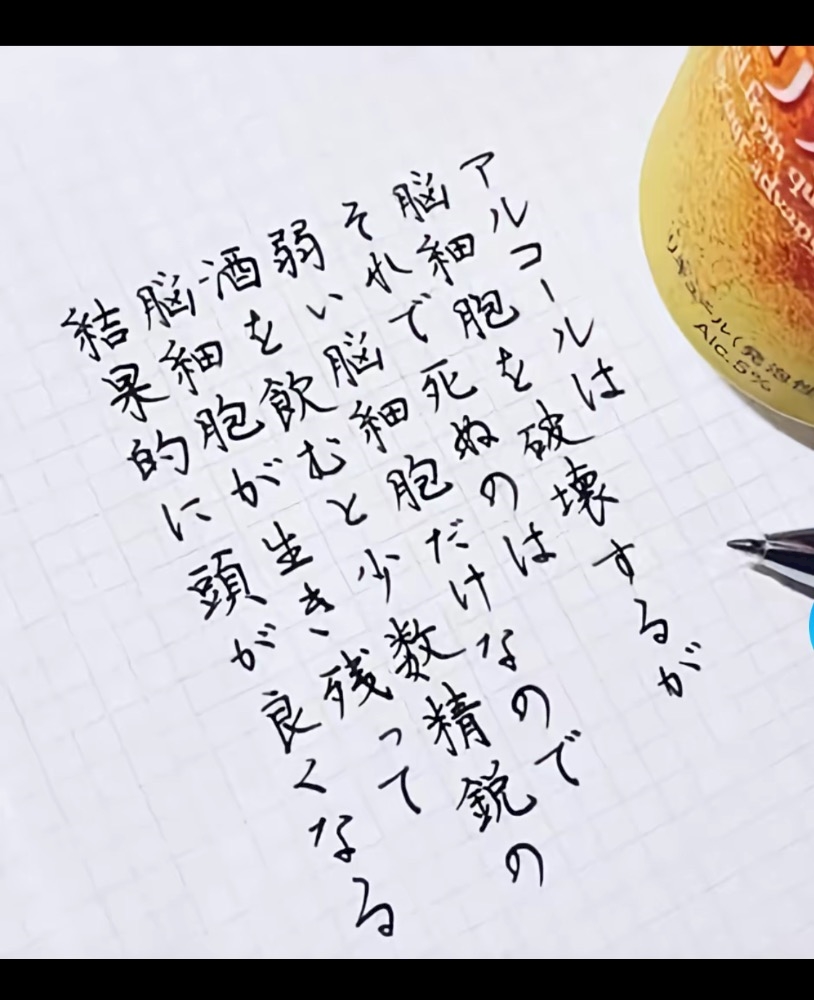 アルコールは
脳細胞を破壊するが
それで死ぬのは
弱い脳細胞だけなので
酒を飲むと少数精鋭の
脳細胞が生き残って
結果的に頭が良くなる
from
ル(発泡性
Alc.5%